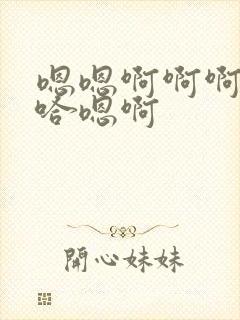 嗯嗯啊啊啊
哈嗯啊
開心妹妹